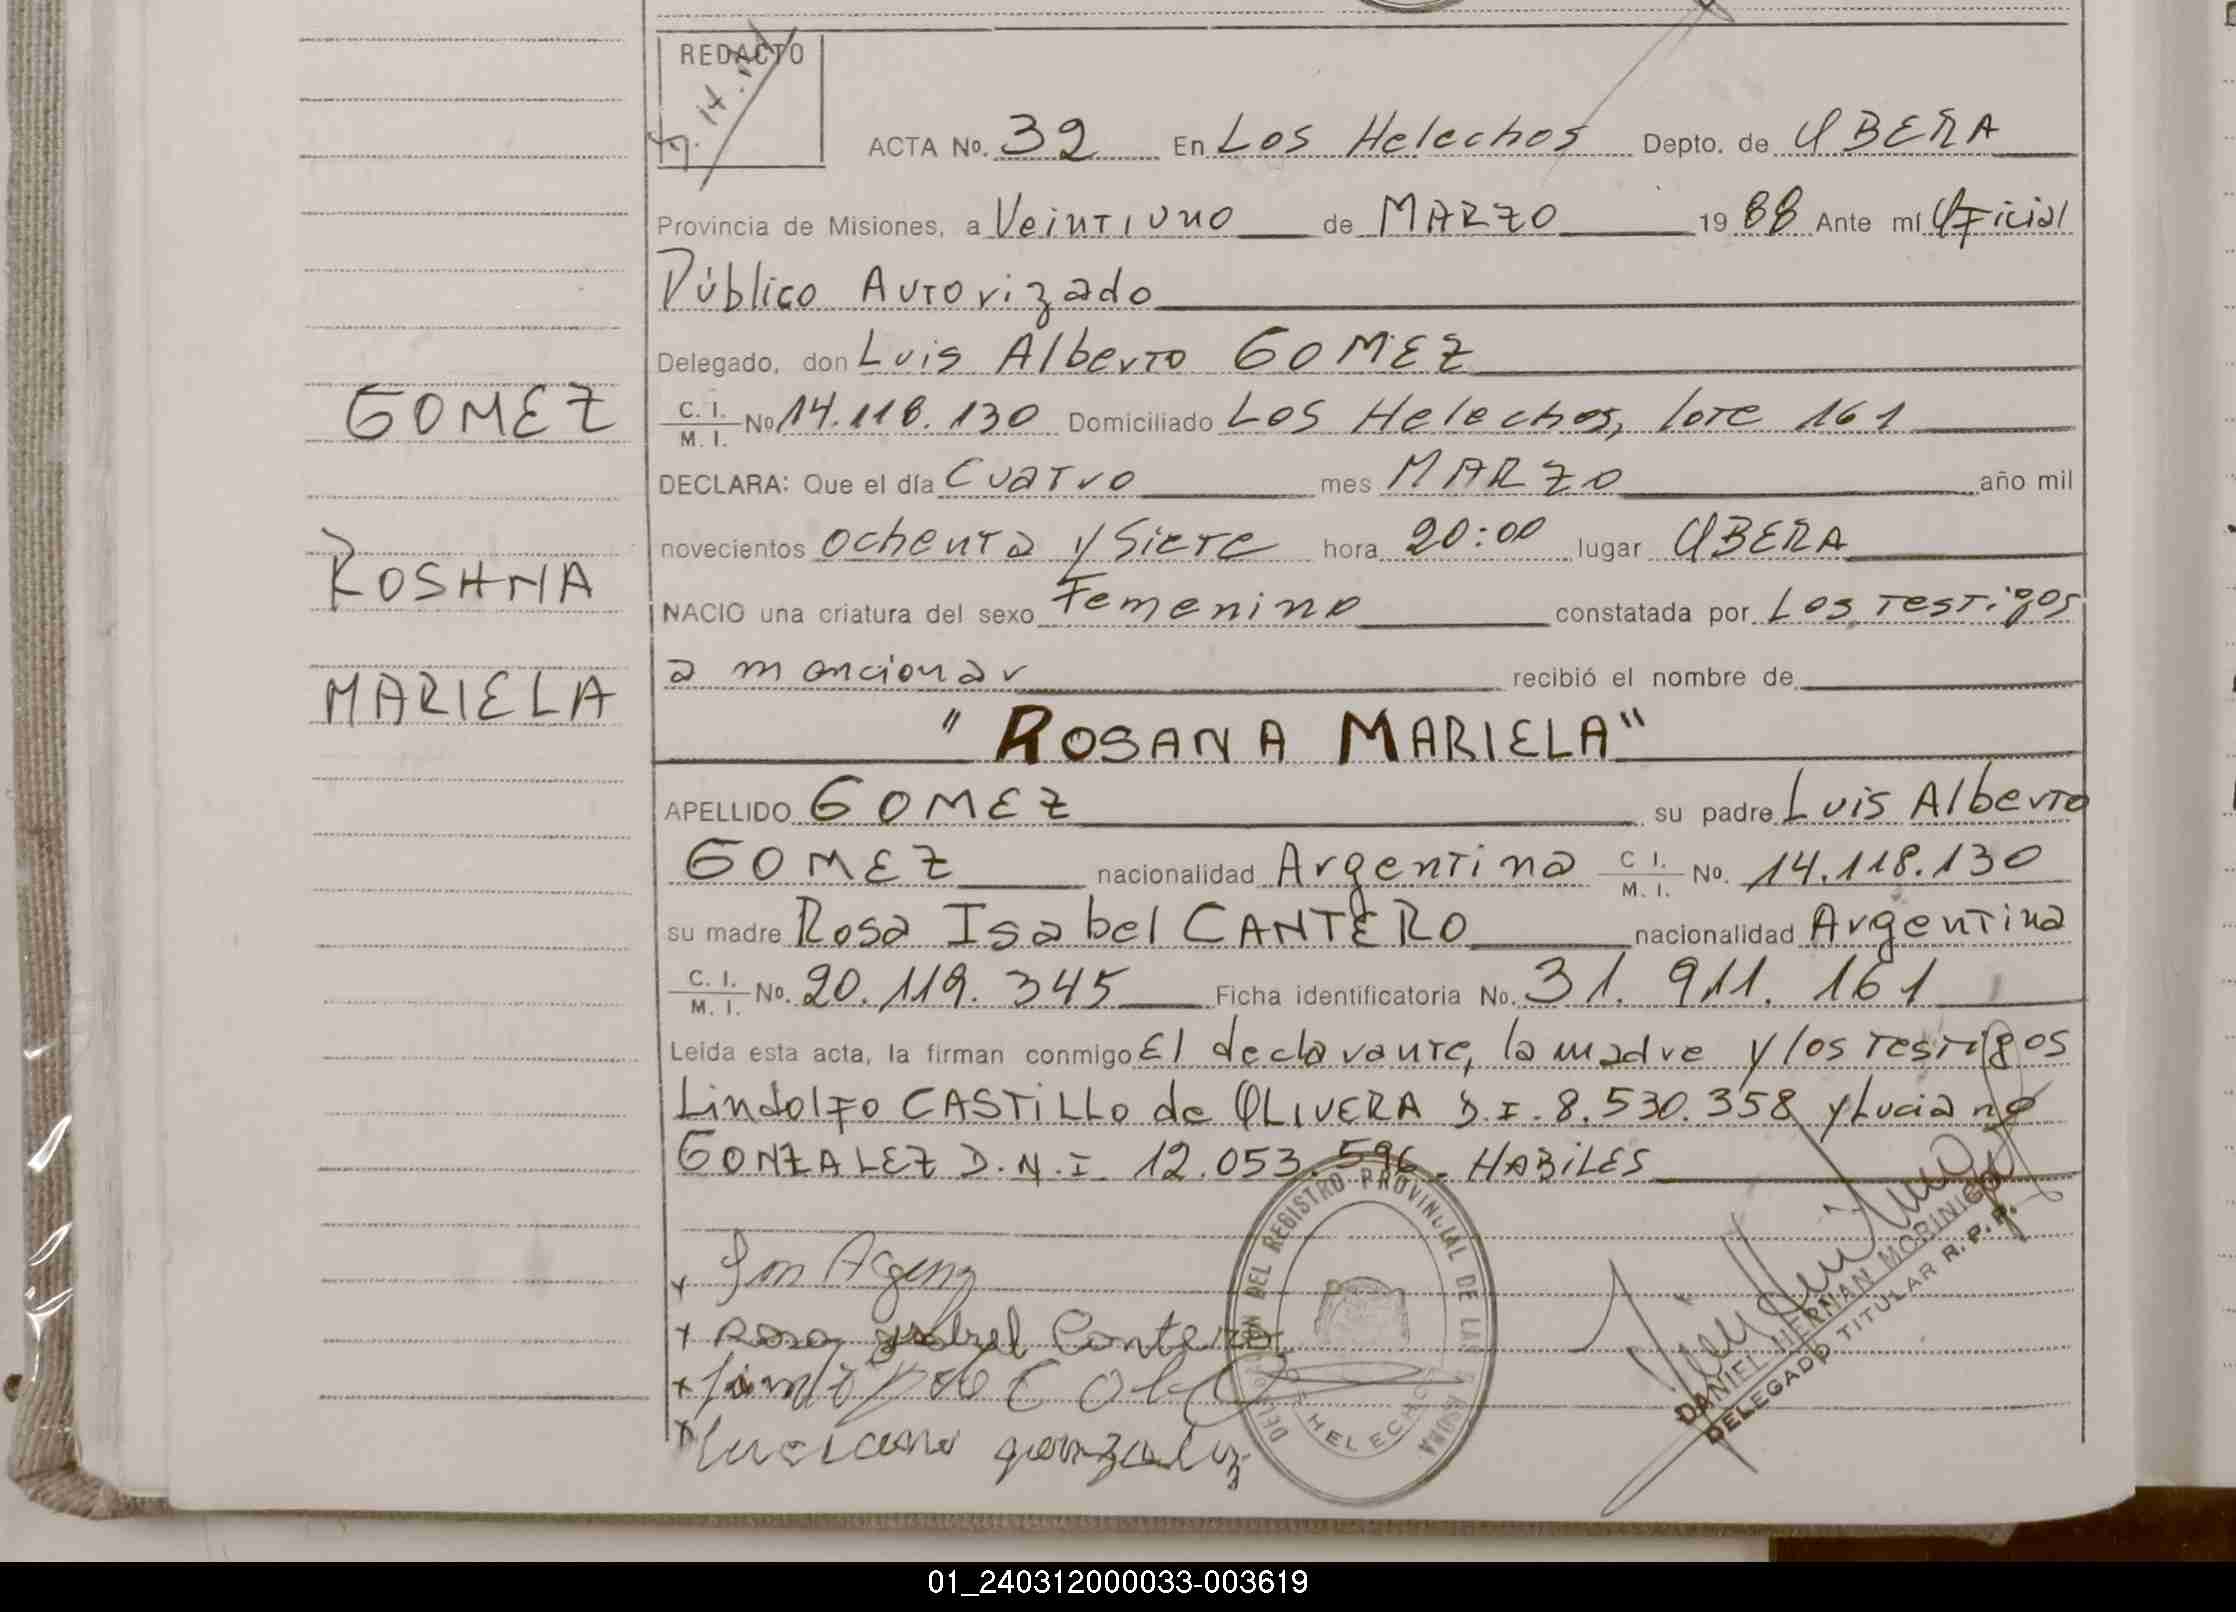 REDACTO
ACTA No. 32 En Los Helechos Depto. de OBERA
Provincia de Misiones, a Veintiuno de MARZO 1988 Ante mí Oficial
Público Autorizado
Delegado, don Luis Alberto GOMEZ
GOMEZ
C. I. / M. I. No 14.118.130 Domiciliado Los Helechos, lote 161
DECLARA: Que el día Cuatro mes MARZO año mil
novecientos ochenta y Siete hora 20:00 lugar OBERA
ROSANA
NACIO una criatura del sexo Femenino constatada por Los testigos
a mencionar recibió el nombre de
MARIELA
"ROSANA MARIELA"
APELLIDO GOMEZ su padre Luis Alberto
GOMEZ nacionalidad Argentina C I. / M. I. No. 14.118.130
su madre Rosa Isabel CANTERO nacionalidad Argentina
C. I. / M. I. No. 20.119.345 Ficha identificatoria No. 31.911.161
Leída esta acta, la firman conmigo El declarante, la madre y los testigos
Lindolfo CASTILLO de OLIVERA D.I. 8.530.358 y Luciano
GONZALEZ D.N.I. 12.053.596. HABILES
DEL REGISTRO PROVINCIAL DE LAS
HELECHOS
Rosa ysabel Cantero
Luciano gonzalez
DANIEL HERNAN MORINIGO
DELEGADO TITULAR R. P. P.
01_240312000033-003619